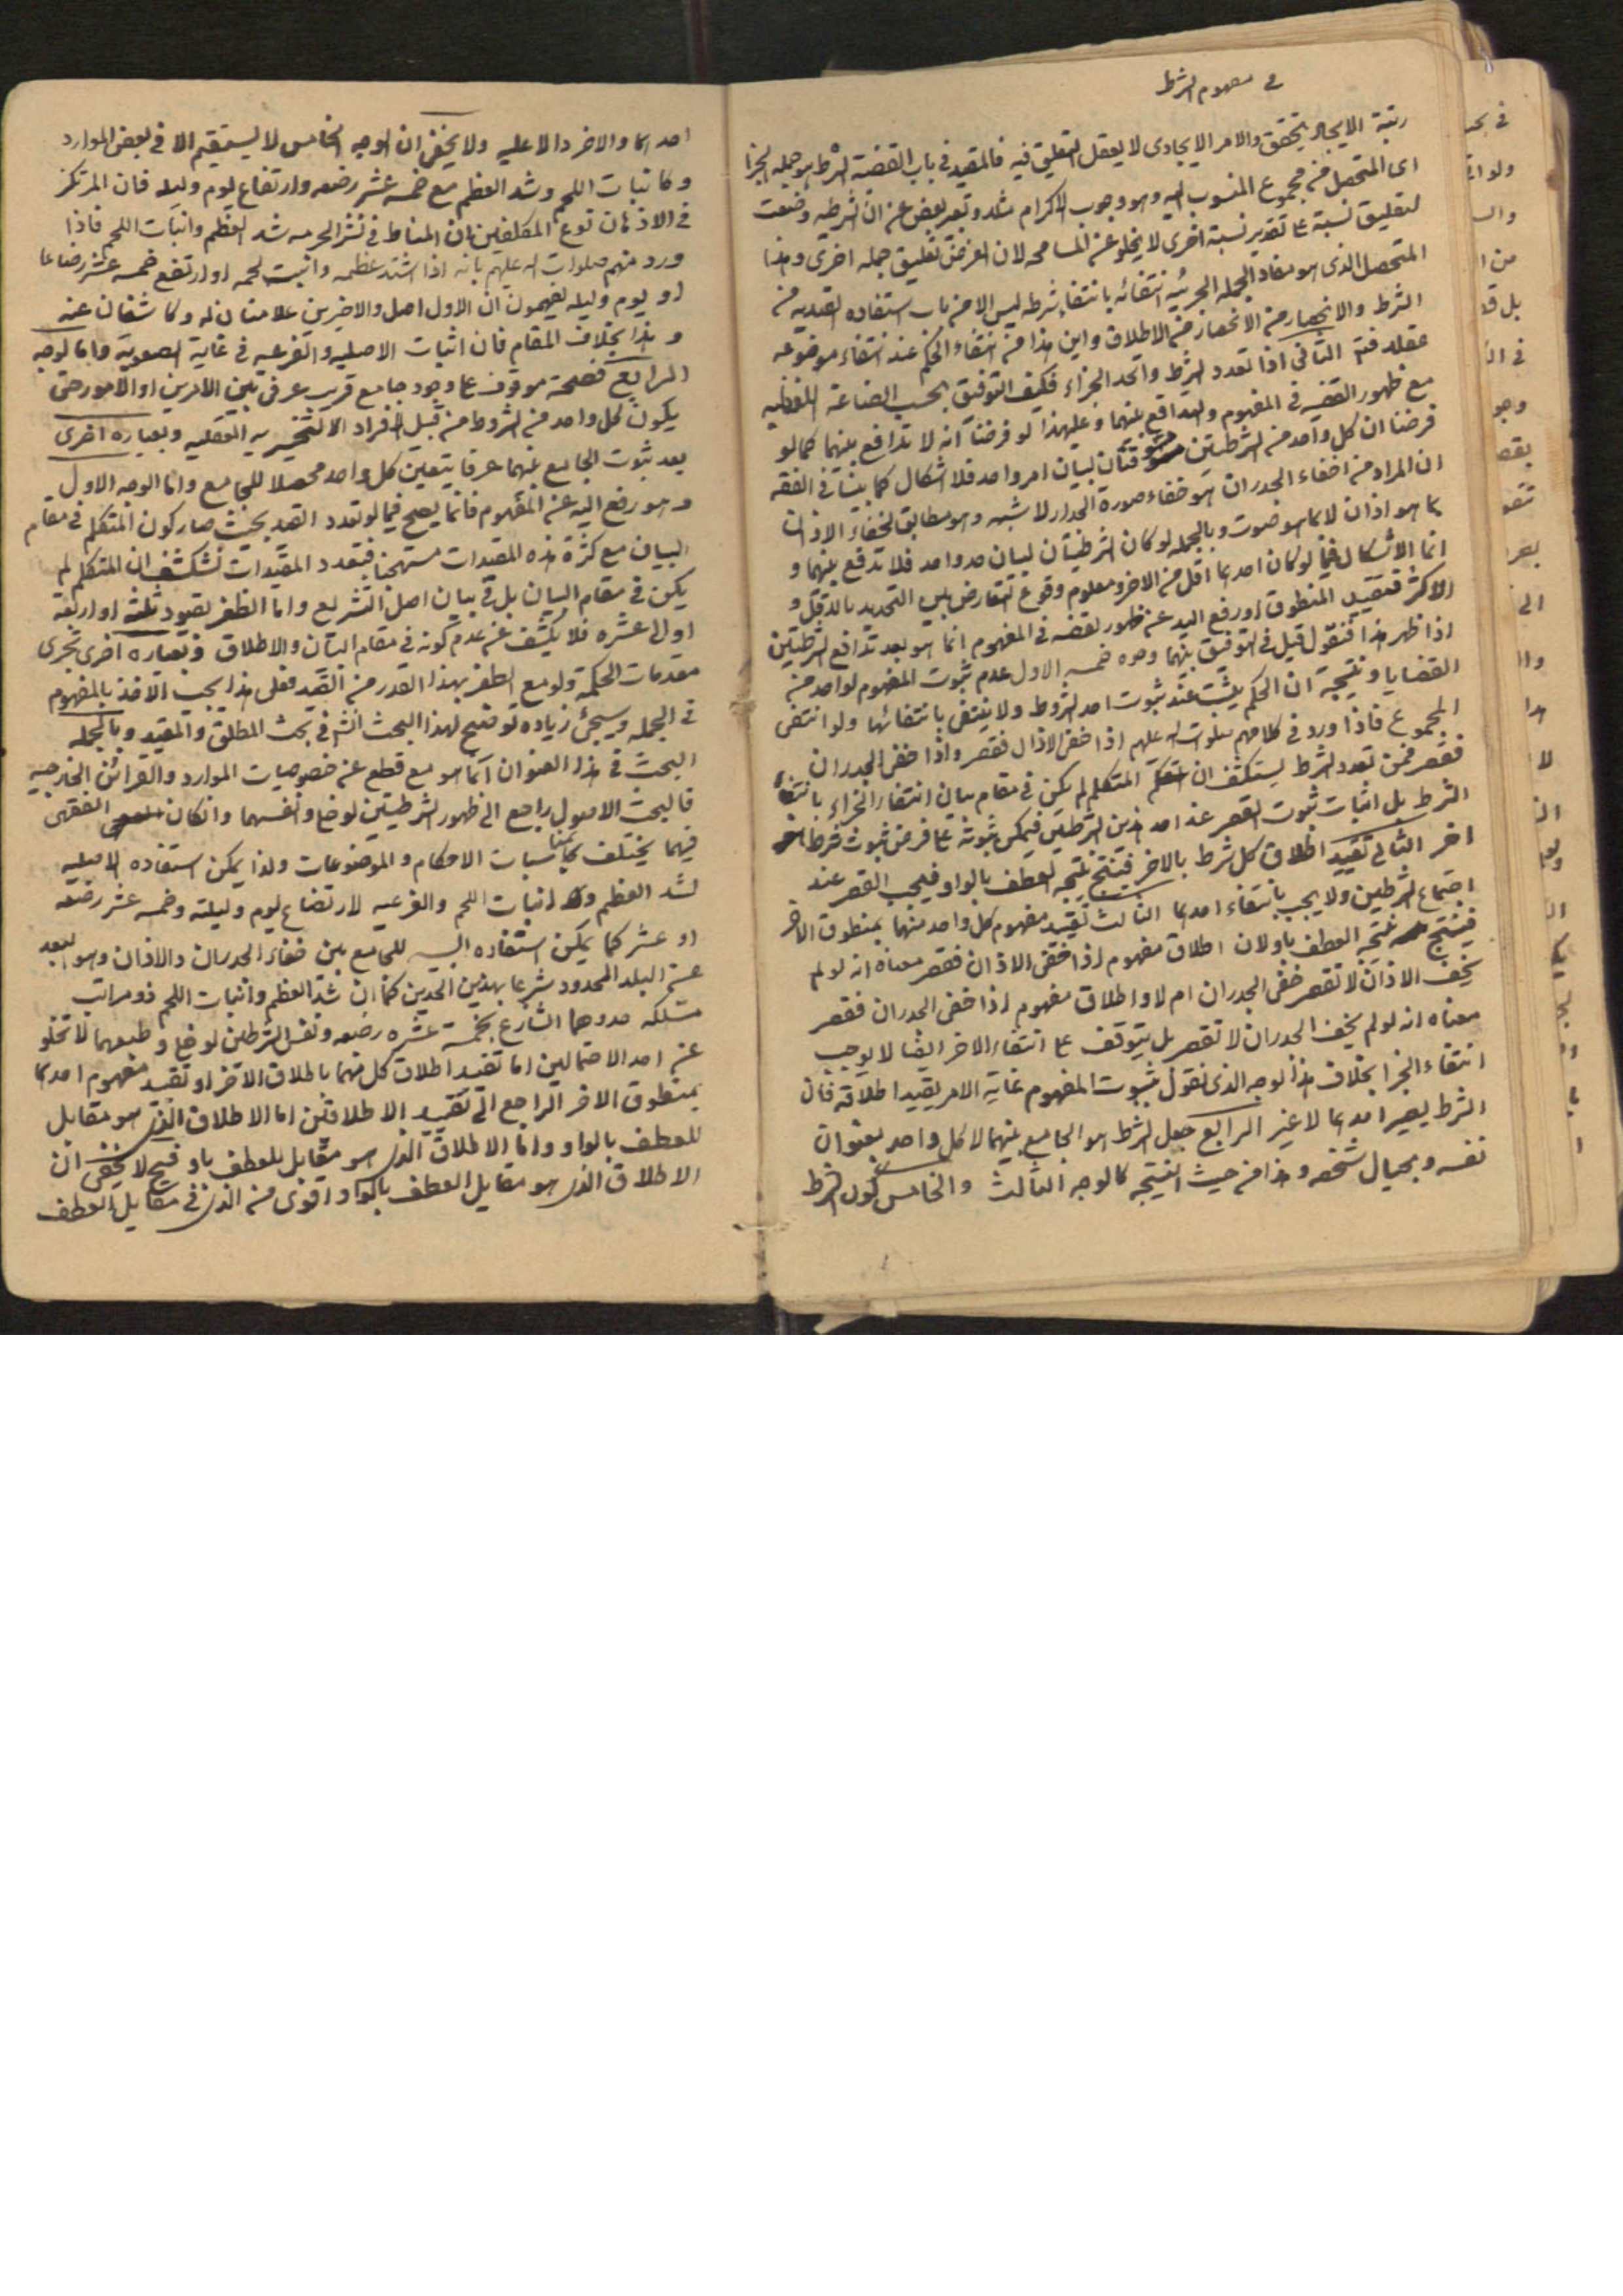 في مفهوم الشرط
رتبة الايجاد يتحقق والامر الايجادى لا يعقل التعليق فيه فالمقيد في باب القضية الشرطية هو جمله الجزا
اى المتحصل من مجموع المنسوب اليه وهو وجوب الاكرام مثلا وتعبير بعض عن ان الشرطيه وضعت
لتعليق نسبة على تقدير نسبة اخرى لا يخلو عن المسامحه لان الغرض تعليق جمله اخرى وهذا
المتحصل الذى هو مفاد الجمله الجزئيه انتفائه بانتفاء شرطه ليس الا من باب استفاده القيديه من
الشرط والانحصار من الانحصار من الاطلاق واين هذا من انتفاء الحكم عند انتفاء موضوعه
عقلا فتم الثانى اذا تعدد الشرط واتحد الجزاء فكيف التوفيق بحسب الصناعة اللفظيه
مع ظهور القضيه في المفهوم والتدافع بينهما وعليهذا لو فرضنا انه لا تدافع بينهما كما لو
فرضنا ان كل واحد من الشرطيتين لبيان امر واحد فلا اشكال كما بينا في الفقه
ان المراد من اخفاء الجدران هو خفاء صورة الجدار لا شبهه وهو مطابق لخفاء الاذان
بما هو اذان لا بما هو صوت وبالجمله لو كان الشرطيتان لبيان حد واحد فلا تدافع بينهما و
انما الاشكال فيما لو كان احدهما اقل من الاخر ومعلوم وقوع التعارض بين التحديد بالاقل و
الاكثر فتقييد المنطوق او رفع اليد عن ظهور القضيه في المفهوم انما هو بعد تدافع الشرطيتين
اذا ظهر هذا فنقول قيل في التوفيق بينهما وجوه خمسه الاول عدم ثبوت المفهوم لواحد من
القضايا ونتيجته ان الحكم يثبت عند ثبوت احد الشروط ولا ينتفى بانتفائها ولو انتفى
المجموع فاذا ورد في كلامهم صلوات اله عليهم اذا خفى الاذان فقصر واذا خفى الجدران
فقصر فمن تعدد الشرط يستكشف ان المتكلم لم يكن في مقام بيان انتفاء الجزاء بانتفاء
الشرط بل اثبات ثبوت القصر عند احد هذين الشرطين فيمكن ثبوته على فرض ثبوت شرط
اخر الثاني تقييد اطلاق كل شرط بالاخر فينتج نتيجه العطف بالواو فيجب القصر عند
اجتماع الشرطين ولا يجب بانتفاء احدهما الثالث تقييد مفهوم كل واحد منهما بمنطوق الاخر
فينتج نتيجه العطف باو لان اطلاق مفهوم اذا خفى الاذان فقصر معناه انه لو لم
يخف الاذان لا تقصر خفى الجدران ام لا واطلاق مفهوم اذا خفى الجدران فقصر
معناه انه لو لم يخف الجدران لا تقصر بل يتوقف على انتفاء الاخر ايضا لا يوجب
انتفاء الجزا بخلاف هذا الوجه الذى نقول بثبوت المفهوم غاية الامر بقييد اطلاقه فان
الشرط يصير احدهما لا غير الرابع جعل الشرط هو الجامع بينهما لا كل واحد بعنوان
نفسه وبحيال شخصه وهذا من حيث النتيجه كالوجه الثالث والخامس كون الشرط
احدهما والاخر دالا عليه ولا يخفى ان الوجه الخامس لا يستقيم الا في بعض الموارد
وكانبات اللحم وشد العظم مع خمسه عشر رضعه وارتضاع يوم وليله فان المرتكز
في الاذهان نوع المكلفين بان المناط في نشر الحرمه شد العظم وانبات اللحم فاذا
ورد منهم صلوات اله عليهم بانه اذا اشتد عظمه وانبت لحمه او ارتضع خمسه عشر رضاعا
او يوم وليله يفهمون ان الاول اصل والاخيرين علامتان له وكاشفان عنه
وهذا بخلاف المقام فان اثبات الاصليه والفرعيه في غاية الصعوبه واما الوجه
الرابع فصحته موقوف على وجود جامع قريب عرفى بين الامرين او الامور حتى
يكون كل واحد من الشروط من قبل افراد التخييريه العقليه وبعباره اخرى
بعد ثبوت الجامع بينهما عرفا يتعين كل واحد محصلا للجامع واما الوجه الاول
وهو رفع اليد عن المفهوم فانما يصح فيما لو تعدد القيد بحيث صار كون المتكلم في مقام
البيان مع كثرة هذه المقيدات مستهجنا فتعدد المقيدات تستكشف ان المتكلم لم
يكن في مقام البيان بل في بيان اصل التشريع واما الظفر بقيود ثلثه او اربعة
او الى عشره فلا يكشف عن عدم كونه في مقام البيان والاطلاق وبعباره اخرى تجرى
مقدمات الحكمة ولو مع الظفر بهذا القدر من القيد فعلى هذا يجب الاخذ بالمفهوم
في الجمله وسيجئ زياده توضيح لهذا البحث انشه في بحث المطلق والمقيد وبالجمله
البحث في هذا العنوان انما هو مع قطع عن خصوصيات الموارد والقرائن الخارجيه
فالبحث الاصولى راجع الى ظهور الشرطيتين لوخليا ونفسهما وانكان الفقهى
فيهما يختلف بحسب مناسبات الاحكام والموضوعات ولذا يمكن استفاده الاصليه
لشد العظم وانبات اللحم والفرعيه لارتضاع يوم وليلته وخمسه عشر رضعه
او عشر كما يمكن استفاده للجامع بين خفاء الجدران والاذان وهو البعد
عن البلد المحدود شرعا بهذين الحدين كما ان شد العظم وانبات اللحم ذو مراتب
مشككه حدوهما الشارع بخمسة عشره رضعه ونفس الشرطين لوخليا وطبعهما لا تخلو
عن احد الاحتمالين اما تقييد اطلاق كل منهما باطلاق الاخر او تقييد مفهوم احدهما
بمنطوق الاخر الراجع الى تقييد الاطلاقين اما الاطلاق الذى هو مقابل
للعطف بالواو واما الاطلاق الذى هو مقابل للعطف باو فح لا يخفى ان
الاطلاق الذى هو مقابل العطف بالواو اقوى من الذى في مقابل العطف